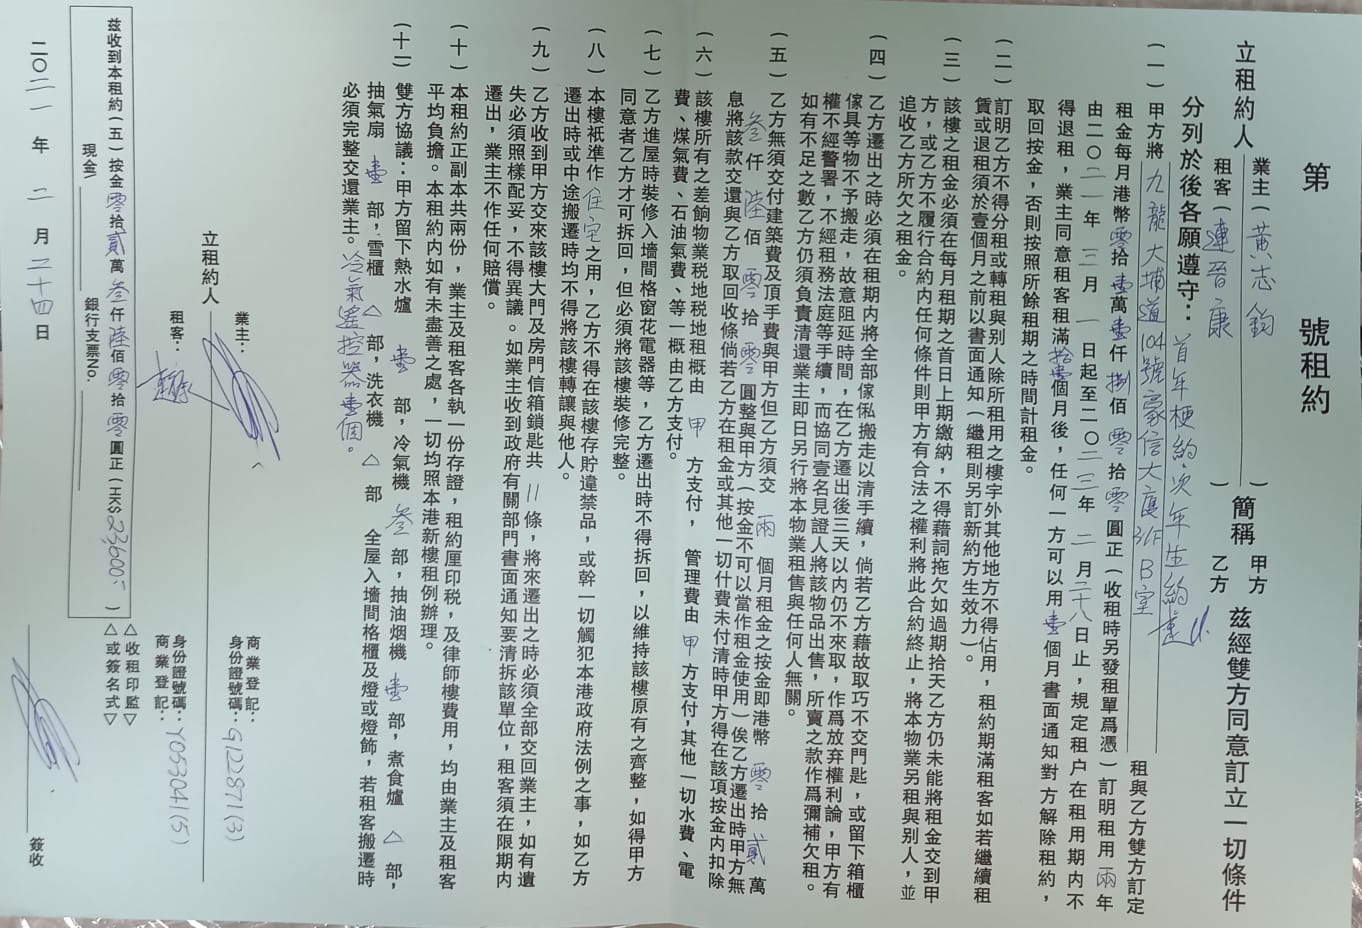 第 號租約
立租約人 業主（黃志鈞）簡稱 甲方 茲經雙方同意訂立一切條件
租客（連晉康）乙方
分列於後各願遵守：首年梗約，次年生約
（一）甲方將 九龍大埔道104號豪信大廈3/F B室 租與乙方雙方訂定
租金每月港幣零拾壹萬壹仟捌佰零拾零圓正（收租時另發租單爲憑）訂明租用兩年
由二〇二一年三月一日起至二〇二三年二月二十八日止，規定租户在租用期内不
得退租，業主同意租客租滿拾壹個月後，任何一方可以用壹個月書面通知對方解除租約，
取回按金，否則按照所餘租期之時間計租金。
（二）訂明乙方不得分租或轉租與别人除所租用之樓宇外其他地方不得佔用，租約期滿租客如若繼續租
賃或退租須於壹個月之前以書面通知（繼租則另訂新約方生效力）。
（三）該樓之租金必須在每月租期之首日上期繳納，不得藉詞拖欠如過期拾天乙方仍未能將租金交到甲
方，或乙方不履行合約内任何條件則甲方有合法之權利將此合約終止，將本物業另租與别人，並
追收乙方所欠之租金。
（四）乙方遷出之時必須在租期内將全部傢俬搬走以清手續，倘若乙方藉故取巧不交門匙，或留下箱櫃
傢具等物不予搬走，故意阻延時間，在乙方遷出後三天以内仍不來取，作爲放弃權利論，甲方有
權不經警署，不經租務法庭等手續，而協同壹名見證人將該物品出售，所賣之款作爲彌補欠租。
如有不足之數乙方仍須負責清還業主即日另行將本物業租售與任何人無關。
（五）乙方無須交付建築費及頂手費與甲方但乙方須交 兩 個月租金之按金即港幣 零拾貳萬
叁仟陸佰零拾零圓整與甲方（按金不可以當作租金使用）俟乙方遷出時甲方無
息將該款交還與乙方取回收條倘若乙方在租金或其他一切什費未付清時甲方得在該項按金内扣除
（六）該樓所有之差餉物業税地税地租概由 甲 方支付，管理費由 甲 方支付，其他一切水費、電
費、煤氣費、石油氣費、等一概由乙方支付。
（七）乙方進屋時裝修入墻間格窗花電器等，乙方遷出時不得拆回，以維持該樓原有之齊整，如得甲方
同意者乙方才可拆回，但必須將該樓裝修完整。
（八）本樓衹準作 住宅 之用，乙方不得在該樓存貯違禁品，或幹一切觸犯本港政府法例之事，如乙方
遷出時或中途搬遷時均不得將該樓轉讓與他人。
（九）乙方收到甲方交來該樓大門及房門信箱鎖匙共 11 條，將來遷出之時必須全部交回業主，如有遺
失必須照樣配妥，不得異議。如業主收到政府有關部門書面通知要清拆該單位，租客須在限期内
遷出，業主不作任何賠償。
（十）本租約正副本共兩份，業主及租客各執一份存證，租約厘印税，及律師樓費用，均由業主及租客
平均負擔。本租約内如有未盡善之處，一切均照本港新樓租例辦理。
（十一）雙方協議：甲方留下熱水爐 壹 部，冷氣機 叁 部，抽油烟機 壹 部，煮食爐 △ 部，
抽氣扇 壹 部，雪櫃 △ 部，洗衣機 △ 部 全屋入墻間格櫃及燈或燈飾，若租客搬遷時
必須完整交還業主。冷氣遙控器壹個。
立租約人
業主：
商業登記：
身份證號碼：G122871(3)
租客：
身份證號碼：Y053041(5)
商業登記：
△收租印監▽
△或簽名式▽
茲收到本租約（五）按金零拾貳萬叁仟陸佰零拾零圓正（HK$ 23600:-）
現金\ 銀行支票No.
二〇二一年 二 月 二十四日 簽收